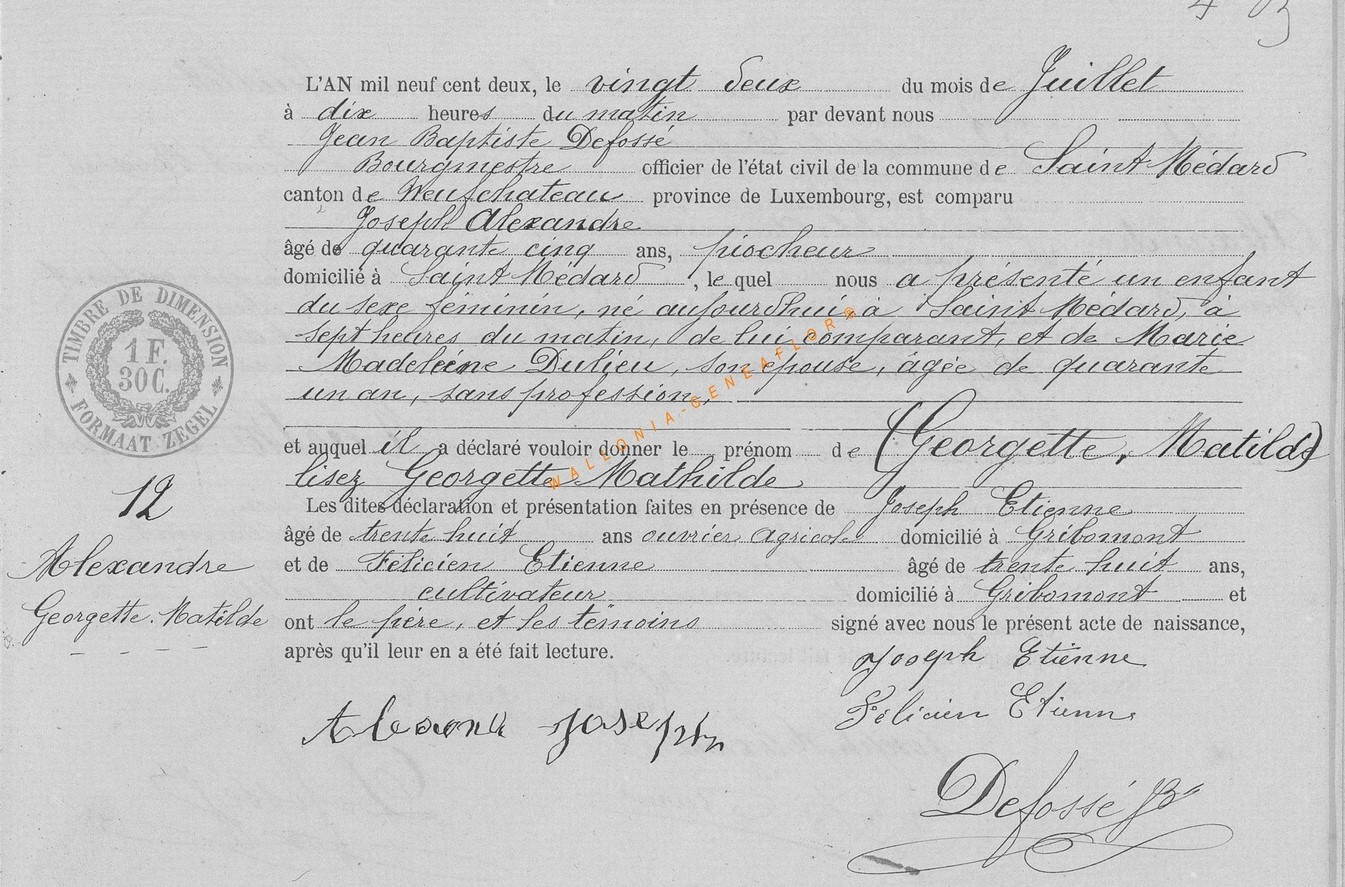 L'AN mil neuf cent deux, le vingt deux du mois de Juillet
à dix heures du matin par devant nous
Jean Baptiste Defossé
Bourgmestre officier de l'état civil de la commune de Saint Médard
canton de Neufchateau province de Luxembourg, est comparu
Joseph Alexandre
âgé de quarante cinq ans, piocheur
domicilié à Saint Médard, le quel nous a présenté un enfant
du sexe féminin, né aujourdhui à Saint Médard, à
sept heures du matin, de lui comparant, et de Marie
Madeleine Dulieu, son épouse, âgée de quarante
un an, sans profession,
et auquel il a déclaré vouloir donner le prénom de (Georgette, Matilde)
lisez Georgette Mathilde
Les dites déclaration et présentation faites en présence de Joseph Etienne
âgé de trente huit ans ouvrier agricole domicilié à Gribomont
et de Félicien Etienne âgé de trente huit ans,
cultivateur domicilié à Gribomont et
ont le père, et les témoins signé avec nous le présent acte de naissance,
après qu'il leur en a été fait lecture.
Joseph Etienne
Félicien Etienne
Alexandre Joseph
Defossé JB
TIMBRE DE DIMENSION
1 F.
30 C.
FORMAAT ZEGEL
12
Alexandre
Georgette. Matilde
WALLONIA-GENEAFLORE